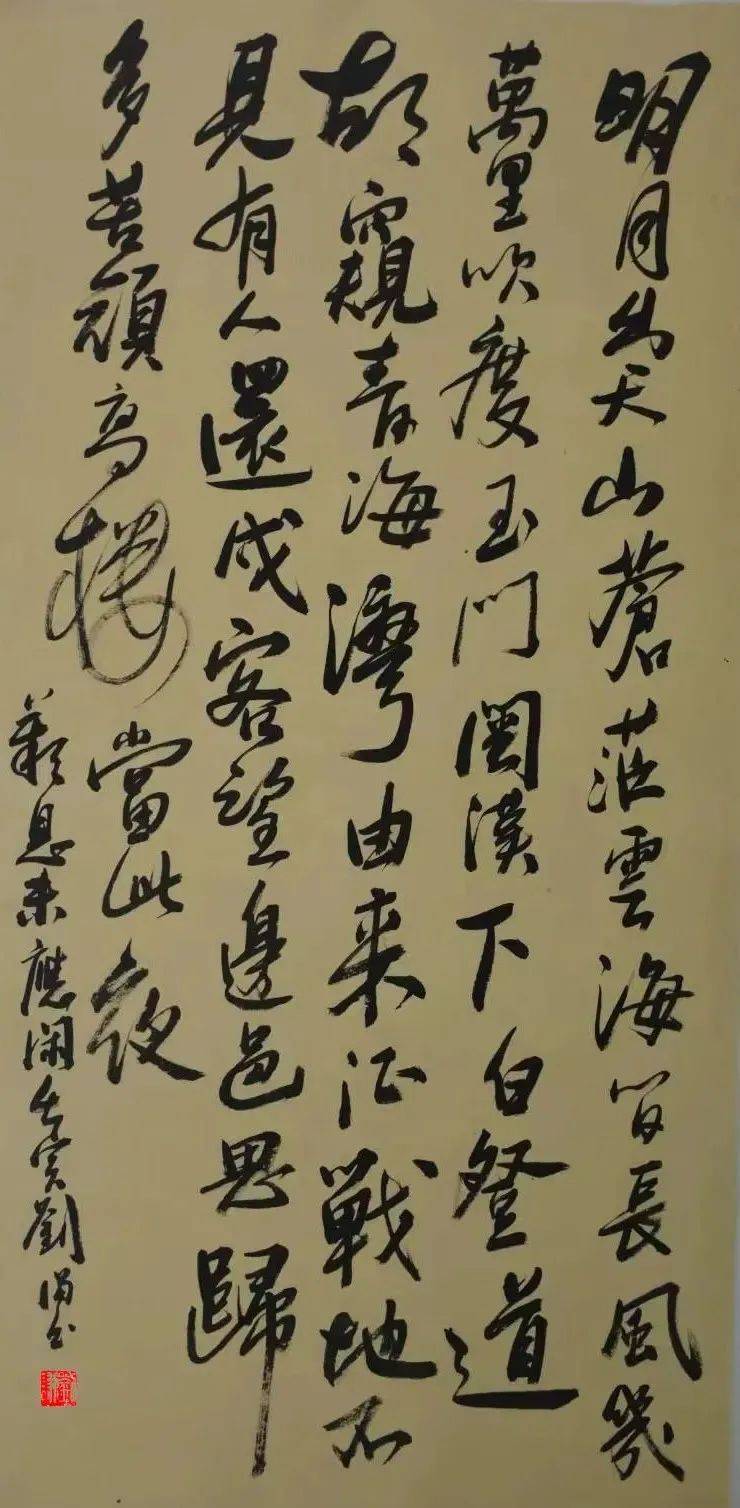 明月出天山蒼茫雲海間長風幾
萬里吹度玉門関漢下白登道
胡窺青海灣由来征戰地不
見有人還戍客望邊邑思歸
多苦顔高樓當此夜
歎息未應閑壬寅劉